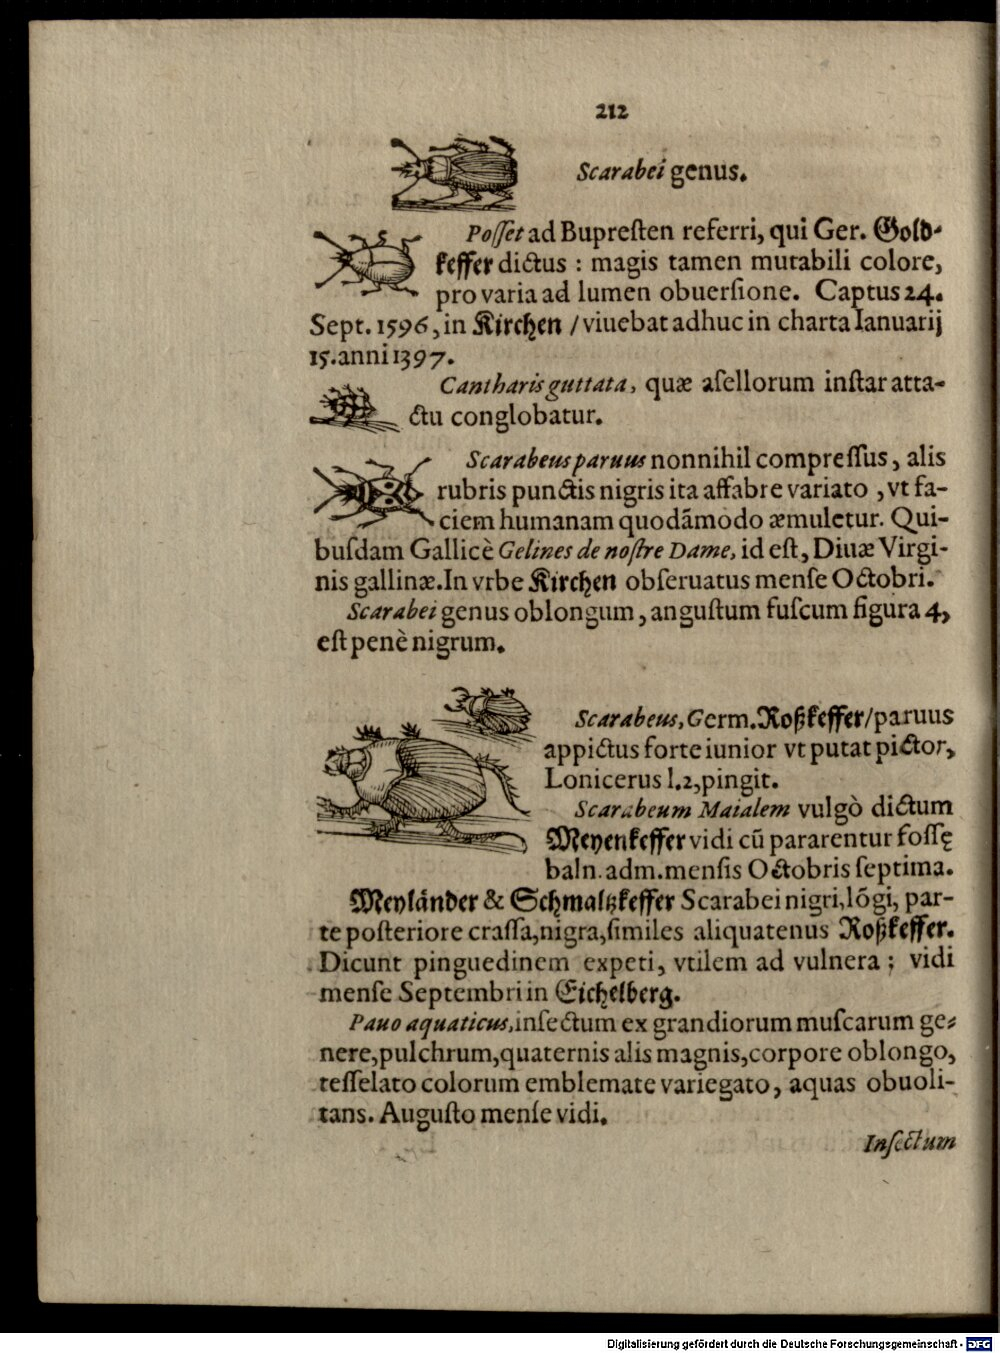 212
Scarabei genus.
Poſſet ad Bupreſten referri, qui Ger. Gold-
keffer dictus : magis tamen mutabili colore,
pro varia ad lumen obuerſione. Captus 24.
Sept. 1596, in Kirchen / viuebat adhuc in charta Ianuarij
15. anni 1397.
Cantharis guttata, quæ aſellorum inſtar atta-
ctu conglobatur.
Scarabeus paruus nonnihil compreſſus, alis
rubris punctis nigris ita affabre variato, vt fa-
ciem humanam quodāmodo æmuletur. Qui-
buſdam Gallicè Gelines de noſtre Dame, id eſt, Diuæ Virgi-
nis gallinæ. In vrbe Kirchen obſeruatus menſe Octobri.
Scarabei genus oblongum, anguſtum fuſcum figura 4,
eſt penè nigrum.
Scarabeus, Germ. Roßkeffer / paruus
appictus forte iunior vt putat pictor,
Lonicerus l. 2, pingit.
Scarabeum Maialem vulgò dictum
Meyenkeffer vidi cū pararentur foſſę
baln. adm. menſis Octobris ſeptima.
Meyländer & Schmaltzkeffer Scarabei nigri, lōgi, par-
te poſteriore craſſa, nigra, ſimiles aliquatenus Roßkeffer.
Dicunt pinguedinem expeti, vtilem ad vulnera ; vidi
menſe Septembri in Eichelberg.
Pauo aquaticus, inſectum ex grandiorum muſcarum ge-
nere, pulchrum, quaternis alis magnis, corpore oblongo,
teſſelato colorum emblemate variegato, aquas obuoli-
tans. Auguſto menſe vidi.
Inſectum
Digitalisierung gefördert durch die Deutsche Forschungsgemeinschaft - DFG